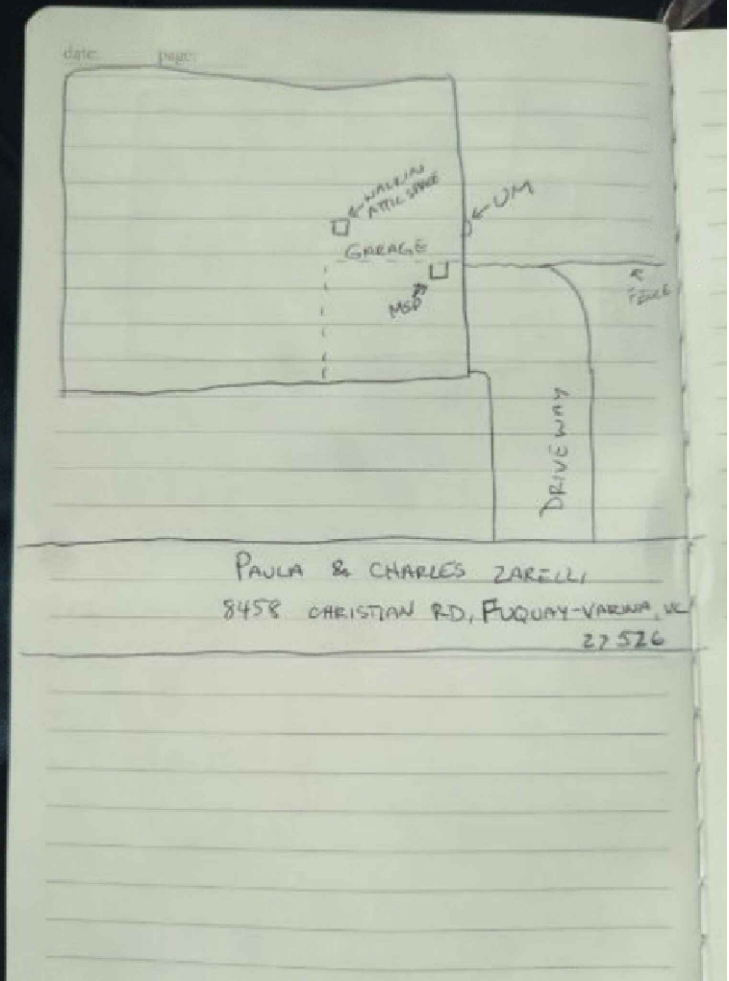 date: page:
WALK IN
ATTIC SPACE
UM
GARAGE
MSP
FENCE
DRIVEWAY
PAULA & CHARLES ZARELLI
8458 CHRISTIAN RD, FUQUAY-VARINA, NC
27526